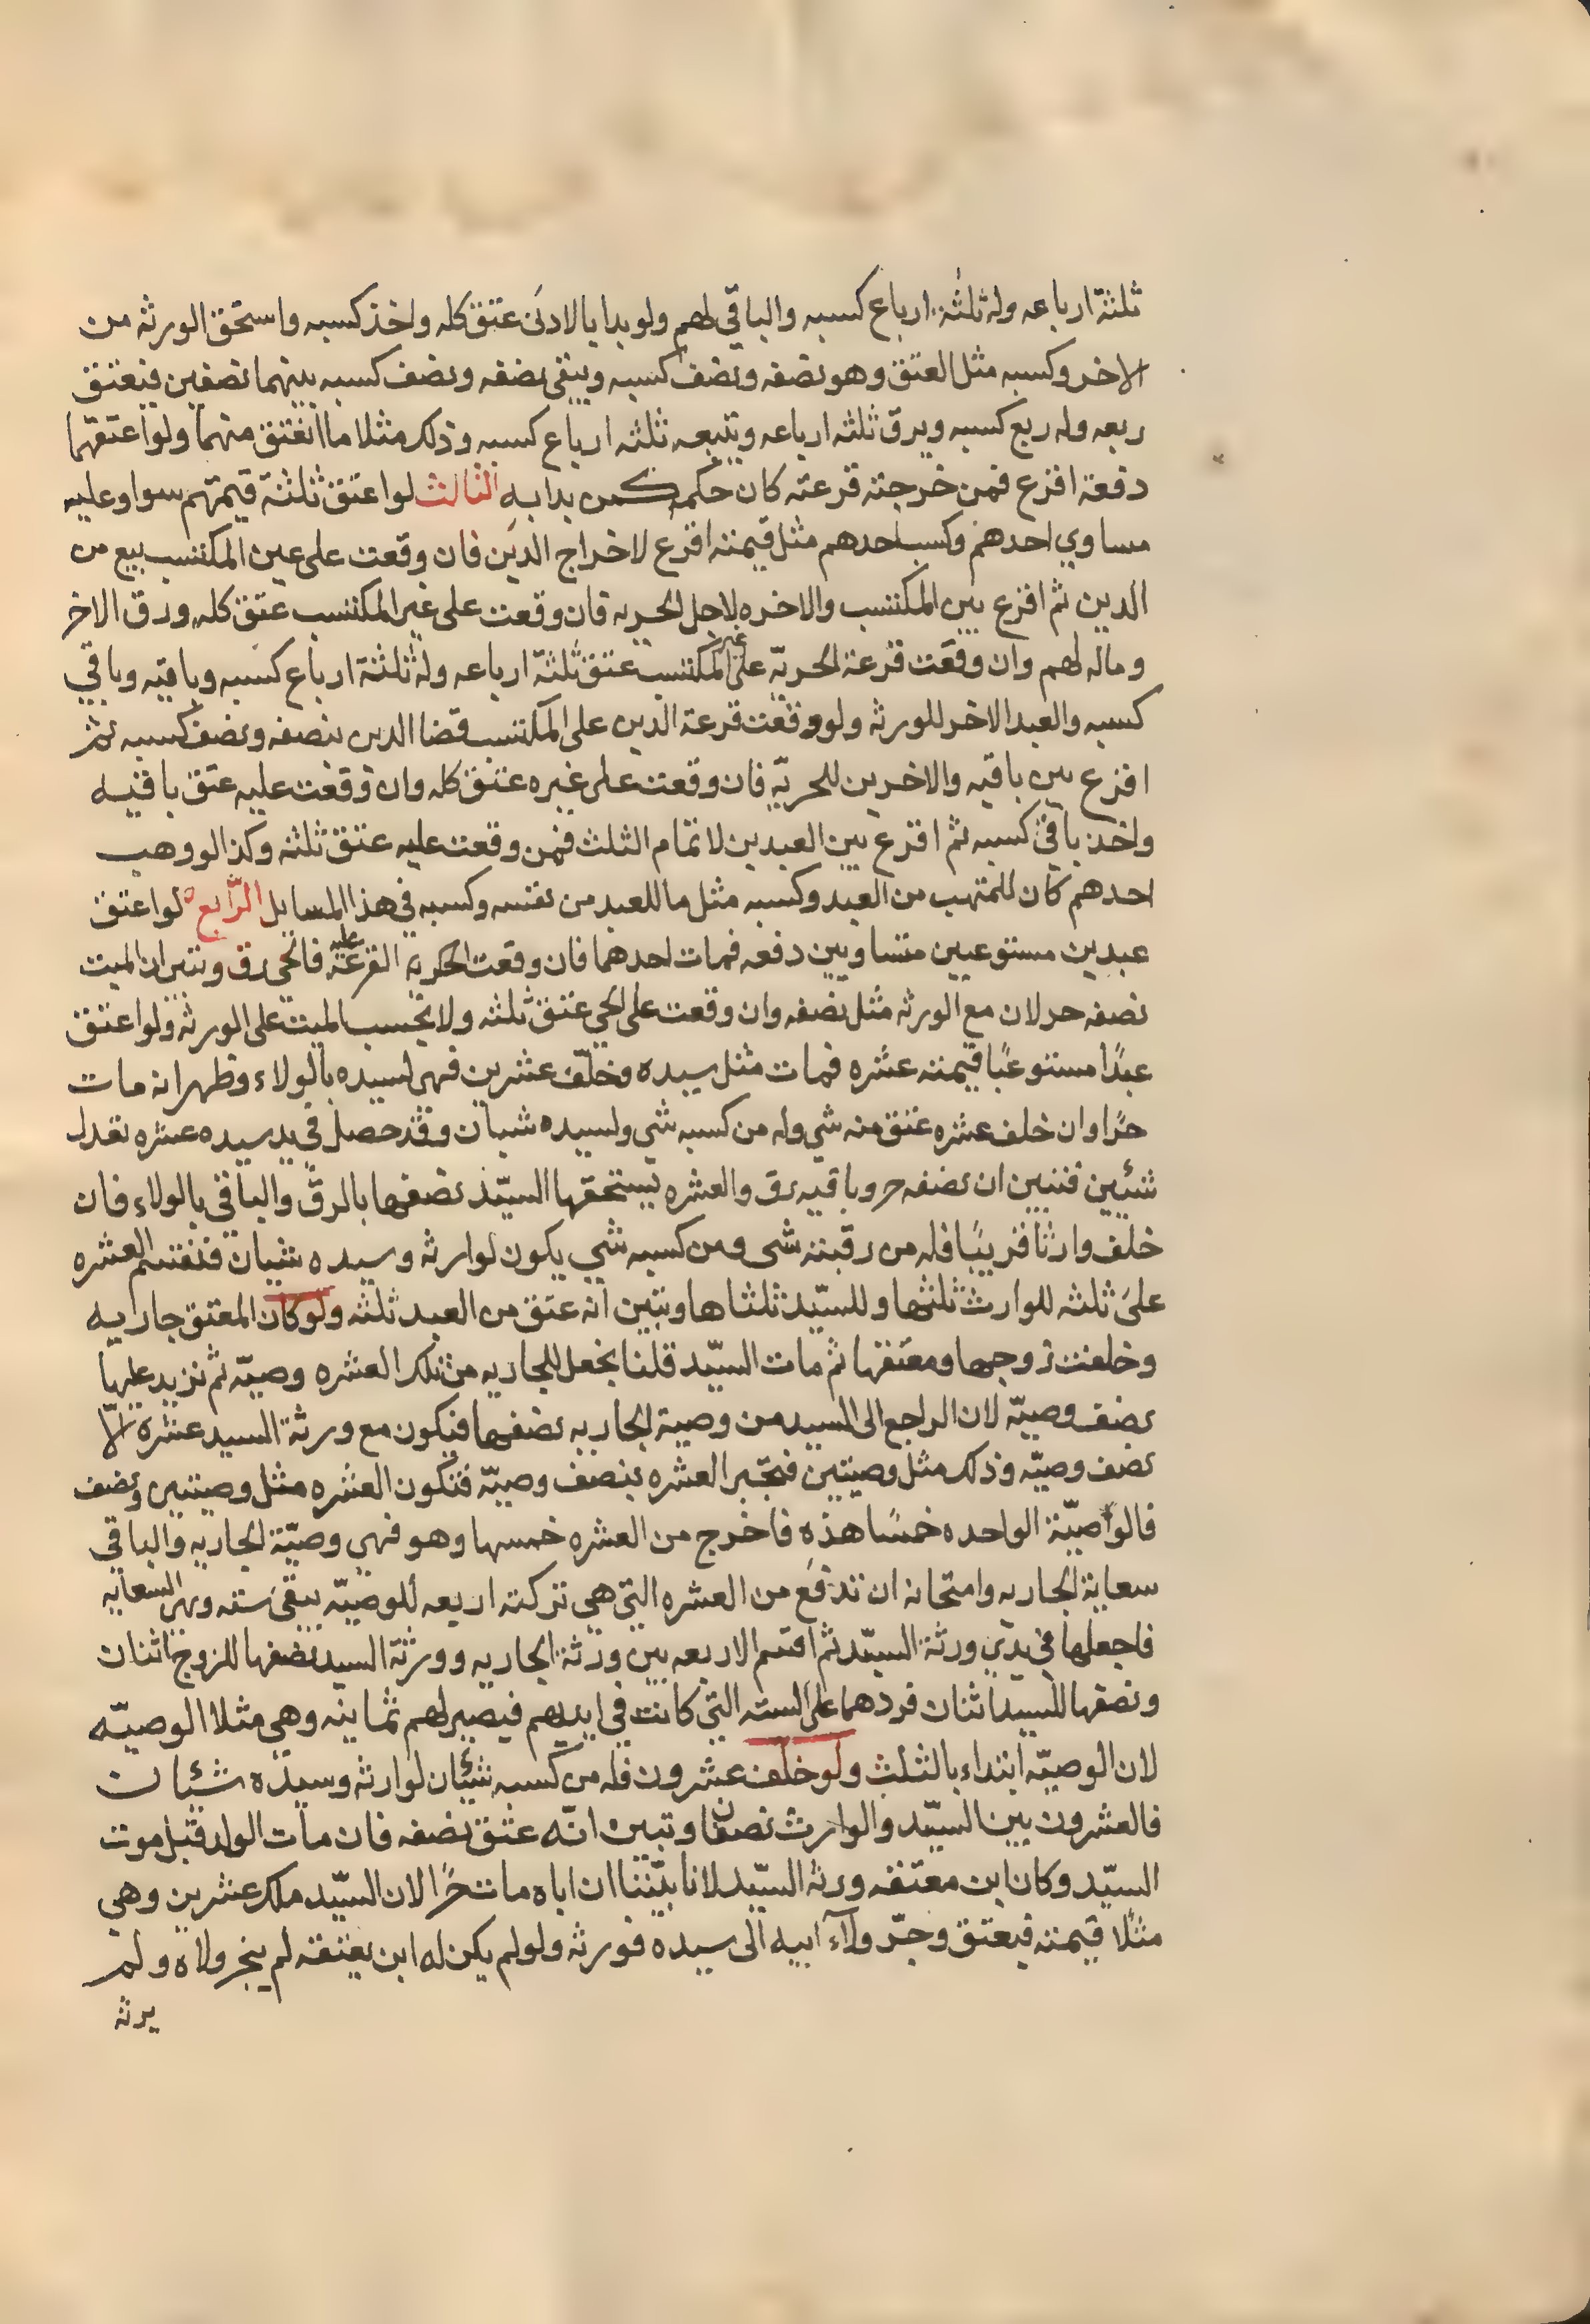 ثلثة ارباعه وله ثلثة ارباع كسبه والباقي لهم ولو بدا بالادنى عتق كله واخذ كسبه واستحق الورثه من
الاخر وكسبه مثل العتق وهو نصفه ونصف كسبه ويبقى نصفه ونصف كسبه بينهما نصفين فيعتق
ربعه وله ربع كسبه ويرق ثلثه ارباعه ويتبعه ثلثه ارباع كسبه وذلك مثلا ما انعتق منهما ولو اعتقهما
دفعة اقرع فمن خرجته قرعته كان حكمه كمن بدا به الثالث لو اعتق ثلثة قيمتهم سوا وعليه
مساوي احدهم وكسب احدهم مثل قيمته اقرع لاخراج الدين فان وقعت على عين المكتسب بيع من
الدين ثم اقرع بين المكتسب والاخره لاجل الحريه فان وقعت على غير المكتسب عتق كله ورق الاخر
وماله لهم وان وقعت قرعة الحريّه على المكتسب عتق ثلثة ارباعه وله ثلثة ارباع كسبه وباقيه وباقي
كسبه والعبد الاخر للورثه ولو وقعت قرعة الدين على المكتسب قضا الدين بنصفه ونصف كسبه ثم
اقرع بين باقيه والاخرين للحريّه فان وقعت على غيره عتق كله وان وقعت عليه عتق باقيه
واخذ باقي كسبه ثم اقرع بين العبدين لاتمام الثلث فمن وقعت عليه عتق ثلثه وكذا لو وهب
احدهم كان للمتهب من العبد وكسبه مثل ما للعبد من نفسه وكسبه في هذا المسايل الرّابع لو اعتق
عبدين مستوعبين متساويين دفعه فمات احدهما فان وقعت الحريه القرعة عليه فالحي رق وتبين ان الميت
نصفه حر لان مع الورثه مثل نصفه وان وقعت على الحي عتق ثلثه ولا يحسب الميت على الورثه ولو اعتق
عبدًا مستوعبًا قيمته عشره فمات مثل سيده وخلّف عشرين فهي لسيده بالولاء وظهر انه مات
حرًا وان خلف عشره عتق منه شي وله من كسبه شي ولسيده شيان وقد حصل في يد سيده عشره تعدل
شئين فتبين ان نصفه حر وباقيه رق والعشره يستحقها السيّد نصفها بالرقّ والباقي بالولاء فان
خلف وارثا قريبًا فله من رقبته شى ومن كسبه شي يكون لوارثه وسيده شيان فتقتسم العشره
على ثلثه للوارث ثلثها وللسيّد ثلثاها وتبين انه عتق من العبد ثلثه ولو كان المعتق جاريه
وخلفت زوجها ومعتقها ثم مات السيّد قلنا بجعل للجاريه من تلك العشره وصيّه ثم نزيد عليها
نصف وصيّه لان الراجع الى السيد من وصية الجاريه نصفها فيكون مع ورثة السيد عشره الّا
نصف وصيّه وذلك مثل وصيتين فتجبر العشره بنصف وصيّه فتكون العشره مثل وصيتين ونصف
فالوصيّة الواحده خمسًا هذه فاخرج من العشره خمسها وهو فهي وصيّة الجاريه والباقي
سعاية الجاريه وامتحانه ان تدفع من العشره التي هي تركته اربعه للوصيّه يبقى سته وهي السعايه
فاجعلها في يدي ورثة السيّد ثم اقتسم الاربعه بين ورثة الجاريه وورثة السيد نصفها للزوج اثنان
ونصفها للسيد اثنان فردهما على السته التي كانت في ايديهم فيصير لهم ثمانيه وهي مثلا الوصيّه
لان الوصيّه ابتداء بالثلث ولو خلف عشرون فله من كسبه شيئان لوارثه وسيده شيئان
فالعشرون بين السيّد والوارث نصفان وتبين انّه عتق نصفه فان مات الولد قبل موت
السيّد وكان ابن معتقه ورثه السيّد لانا بيّننا ان اباه مات حرًا لان السيّد ملك عشرين وهي
مثلا قيمته فيعتق وجرّ ولآء ابيه الى سيده فورثه ولو لم يكن له ابن يعتقه لم ينجر ولاه ولم
يرثه